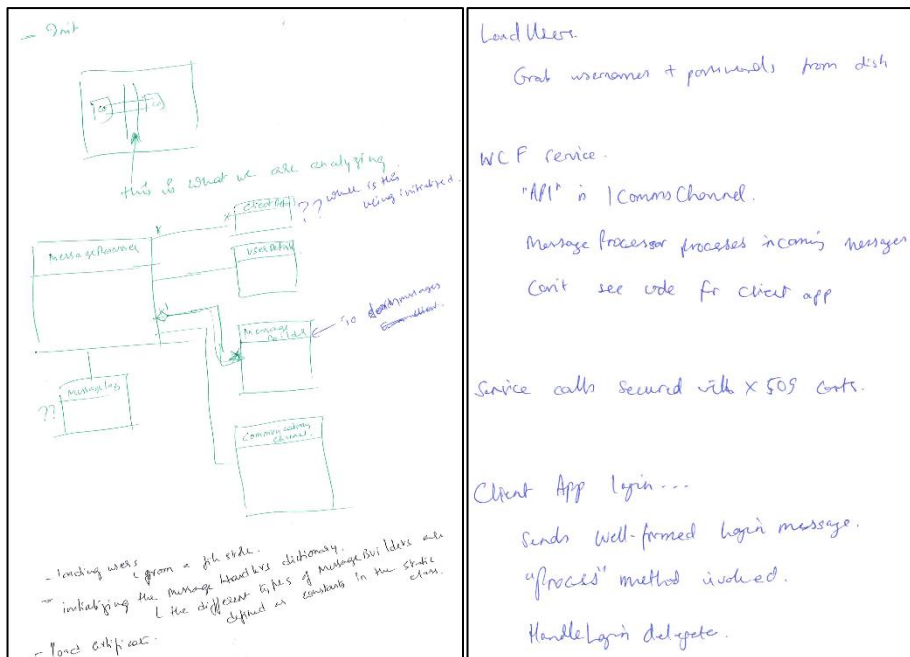 - Init
this is what we are analyzing
ClientApp
?? where is this
being initialized.
Message
UserDetail
Message
Builder
to
messages
MessageLog
??
Communication
Channel.
- loading users
from a file store.
- initializing the Message Handlers dictionary.
the different types of MessageBuilders are
defined as constants in the static
class.
- load certificate.
Load Users.
Grab usernames + passwords from disk
WCF service.
"API" is ICommsChannel.
Message Processor processes incoming messages
Can't see code for client app
Service calls secured with X509 certs.
Client App login...
Sends well-formed login message.
"Process" method invoked.
HandleLogin delegate.